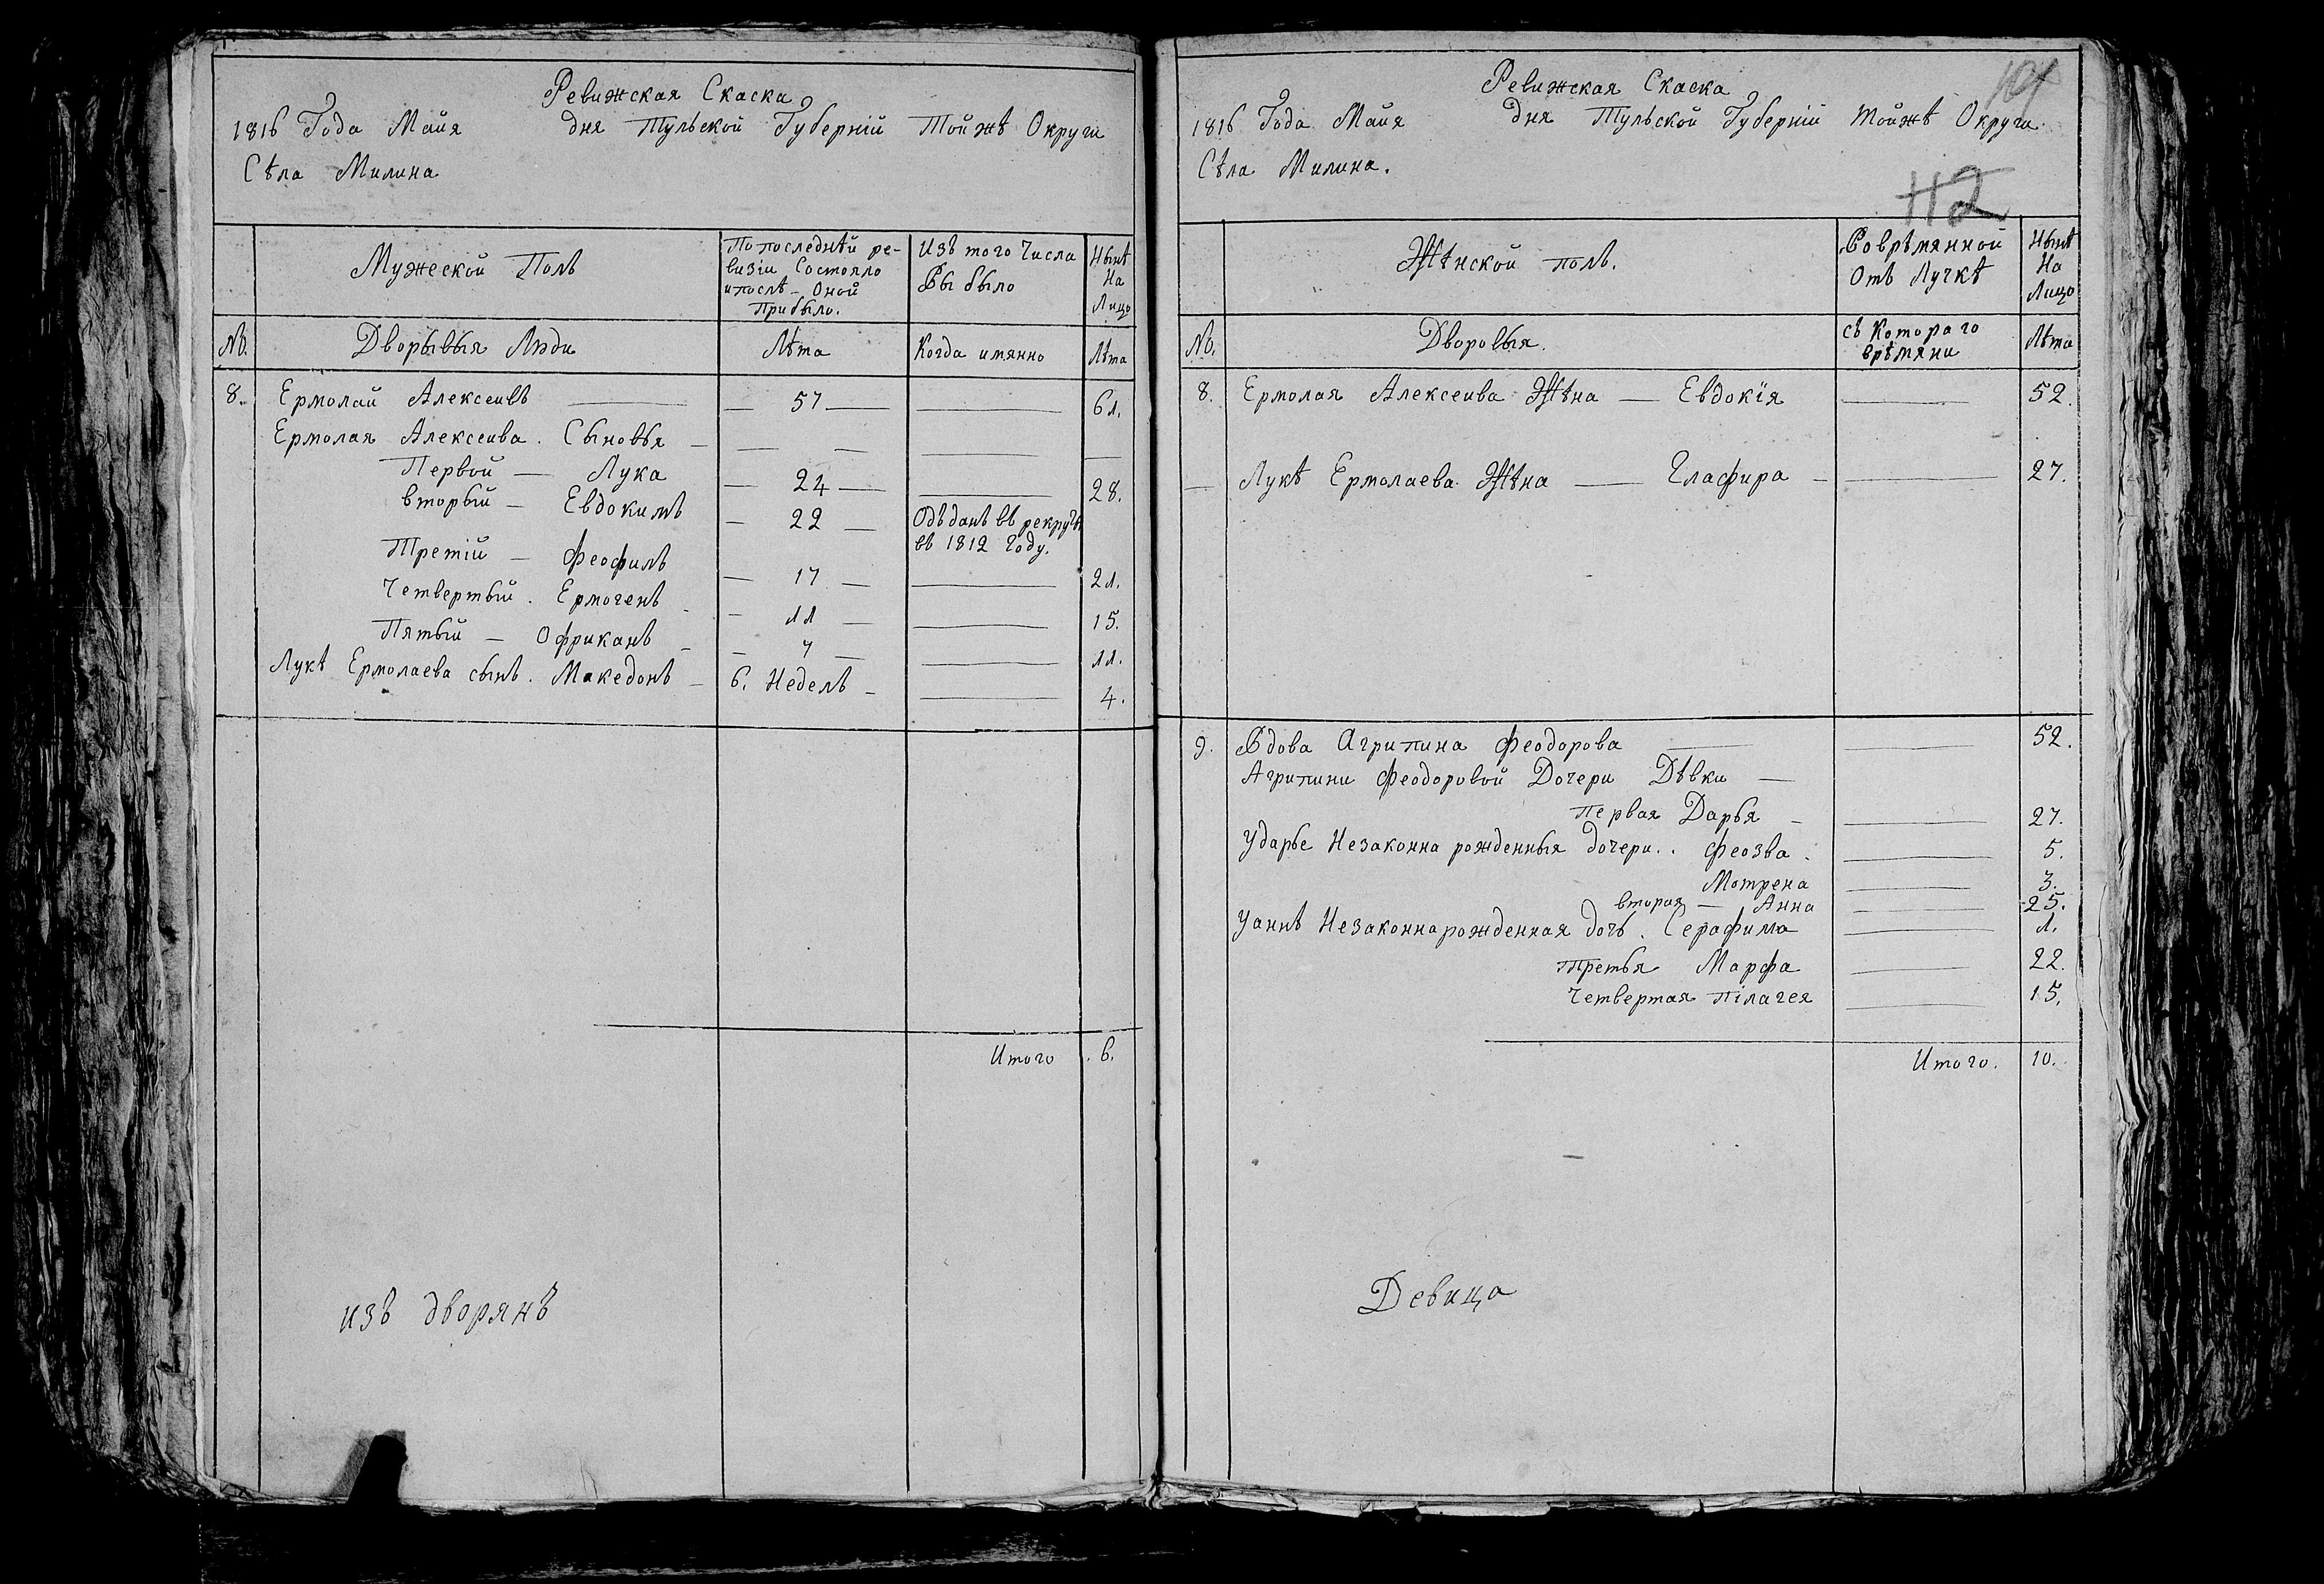 Ревижская Скаска
1816 Года Майя дня Тульской Губерніи Тойжѣ Округи
Сѣла Милина
Мужеской Полъ
По последнѣй ре-
визіи Состояло
и послѣ Оной
Прибыло.
Изъ того Числа
Вы было
Нынѣ
На
Лицо
№.
Дворывыя Люди
Лѣта
Когда имянно
Лѣта
8. Ермолай Алексеивъ — 57 — 61.
Ермолая Алексеива. Сыновья —
Первой — Лука — 24 — 28.
вторый — Евдокимъ — 22 — Одъданъ въ рекруты
въ 1812 Году.
Третій — Феофилъ — 17 — 21.
Четвертый. Ермогенъ — 11 — 15.
Пятый — Офриканъ — 7 — 11.
Лукѣ Ермолаева сынъ. Македонъ — 6. Неделъ — 4.
Итого. 6.
изъ дворянъ
Ревижская Скаска
1816 Года Майя дня Тульской Губерніи Тойжѣ Округи.
Сѣла Милина.
112
Жѣнской полъ.
Воврѣмянной
Отъ Лучкѣ
Нынѣ
На
Лицо
№.
Дворовыя.
съ Котораго
врѣмяни
Лѣта
8. Ермолая Алексеива Жѣна — Евдокія — 52.
— Лукѣ Ермолаева Жѣна — Глафира — 27.
9. Вдова Агрипина Феодорова — 52.
Агрипини Феодоровой Дочери Дѣвки —
Первая Дарья — 27.
Ударье Незаконна рожденныя дочери.. Феозва. 5.
Мотрена 3.
вторая — Анна 25.
Уаннѣ Незаконнарожденная дочь. Серафима 1.
Третья Марфа 22.
Четвертая Пілагея 15.
Итого. 10.
Девица